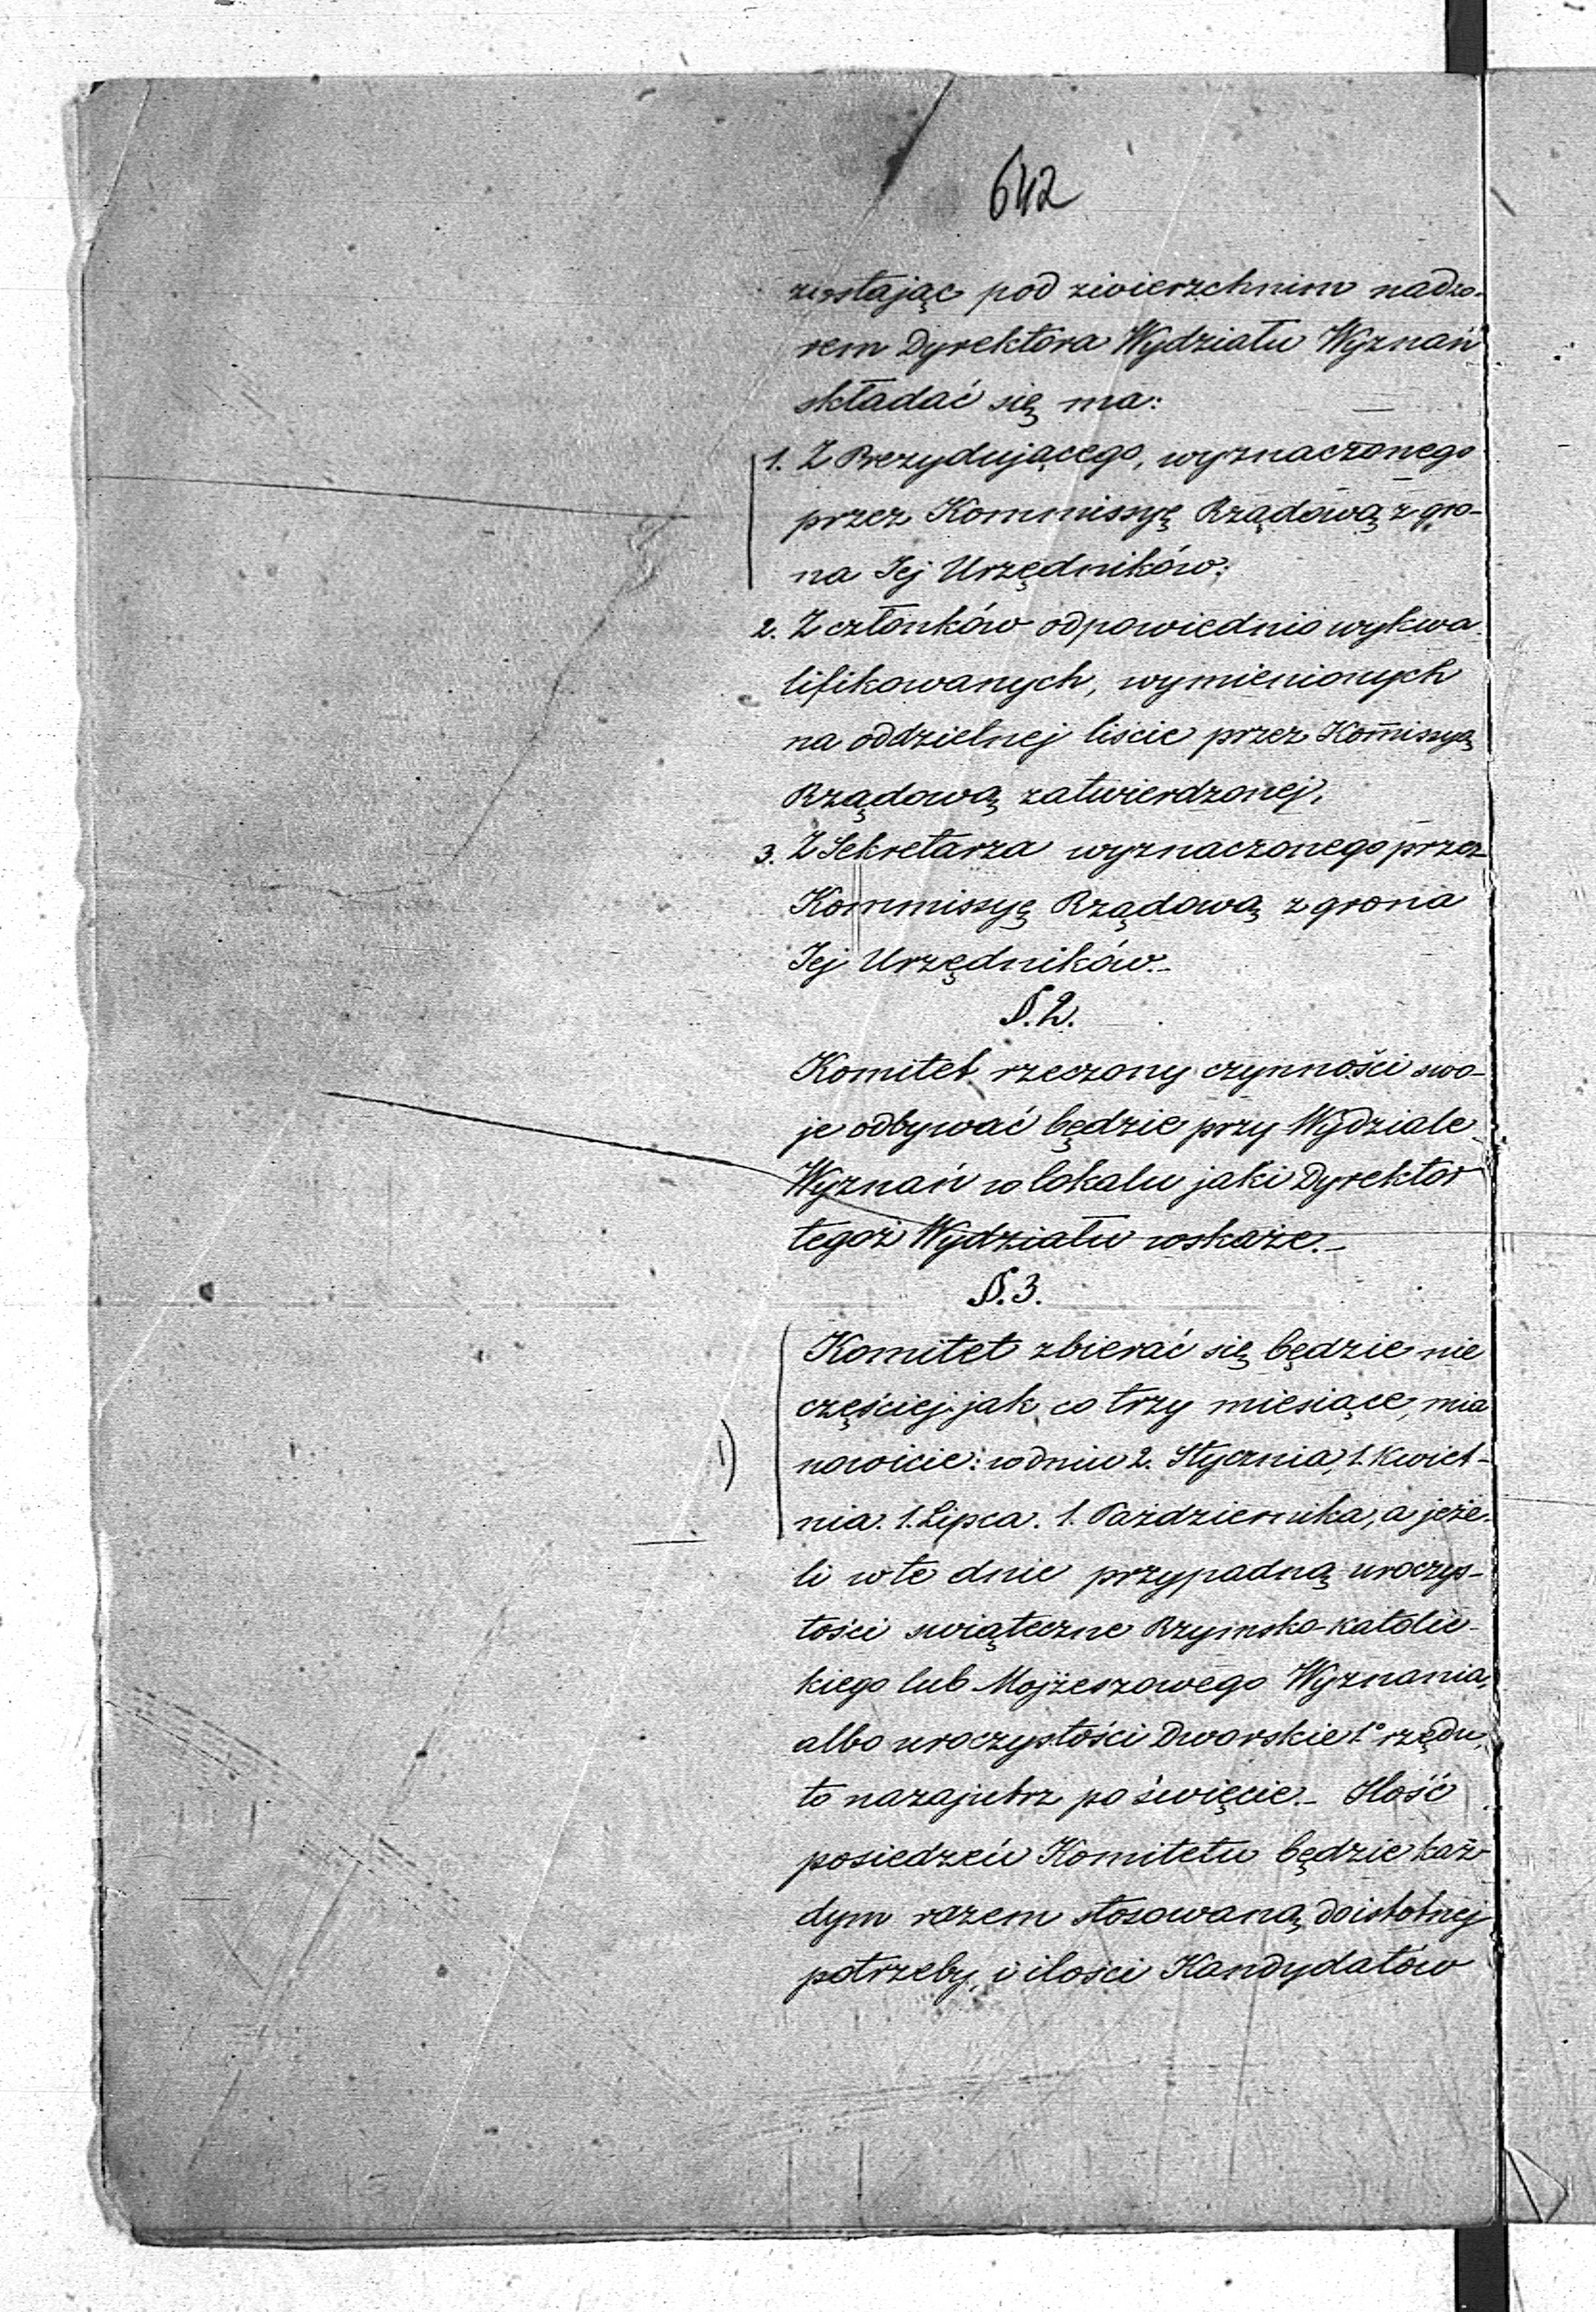 642
zostając pod zwierzchnim nadzo-
rem Dyrektora Wydziału Wyznań
składać się ma:
1. Z Prezydującego, wyznaczonego
przez Kommissyę Rządową z gro-
na Jej Urzędników;
2. Z członków odpowiednio wykwa-
lifikowanych, wymienionych
na oddzielnej liscie przez Kom̄issyą
Rządową zatwierdzonej,
3. Z Sekretarza wyznaczonego przez
Kommissyę Rządową z grona
Jej Urzędników.
§. 2.
Komitet rzeczony czynności swo-
je odbywać będzie przy Wydziale
Wyznań w lokalu jaki Dyrektor
tegoż Wydziału wskaże.
§. 3.
Komitet zbierać się będzie nie
częściej jak co trzy miesiące, mia
1) nowicie: w dniu 2. Stycznia, 1. Kwiet-
nia. 1. Lipca. 1. Października, a jeże-
li w te dnie przypadną uroczys-
tości swiąteczne Rzymsko-katolic-
kiego lub Mojżeszowego Wyznania,
albo uroczystości Dworskie 1° rzędu,
to nazajutrz po święcie. Ilość
posiedzeń Komitetu będzie każ-
dym razem stosowaną do istotnej
potrzeby, i ilości Kandydatów